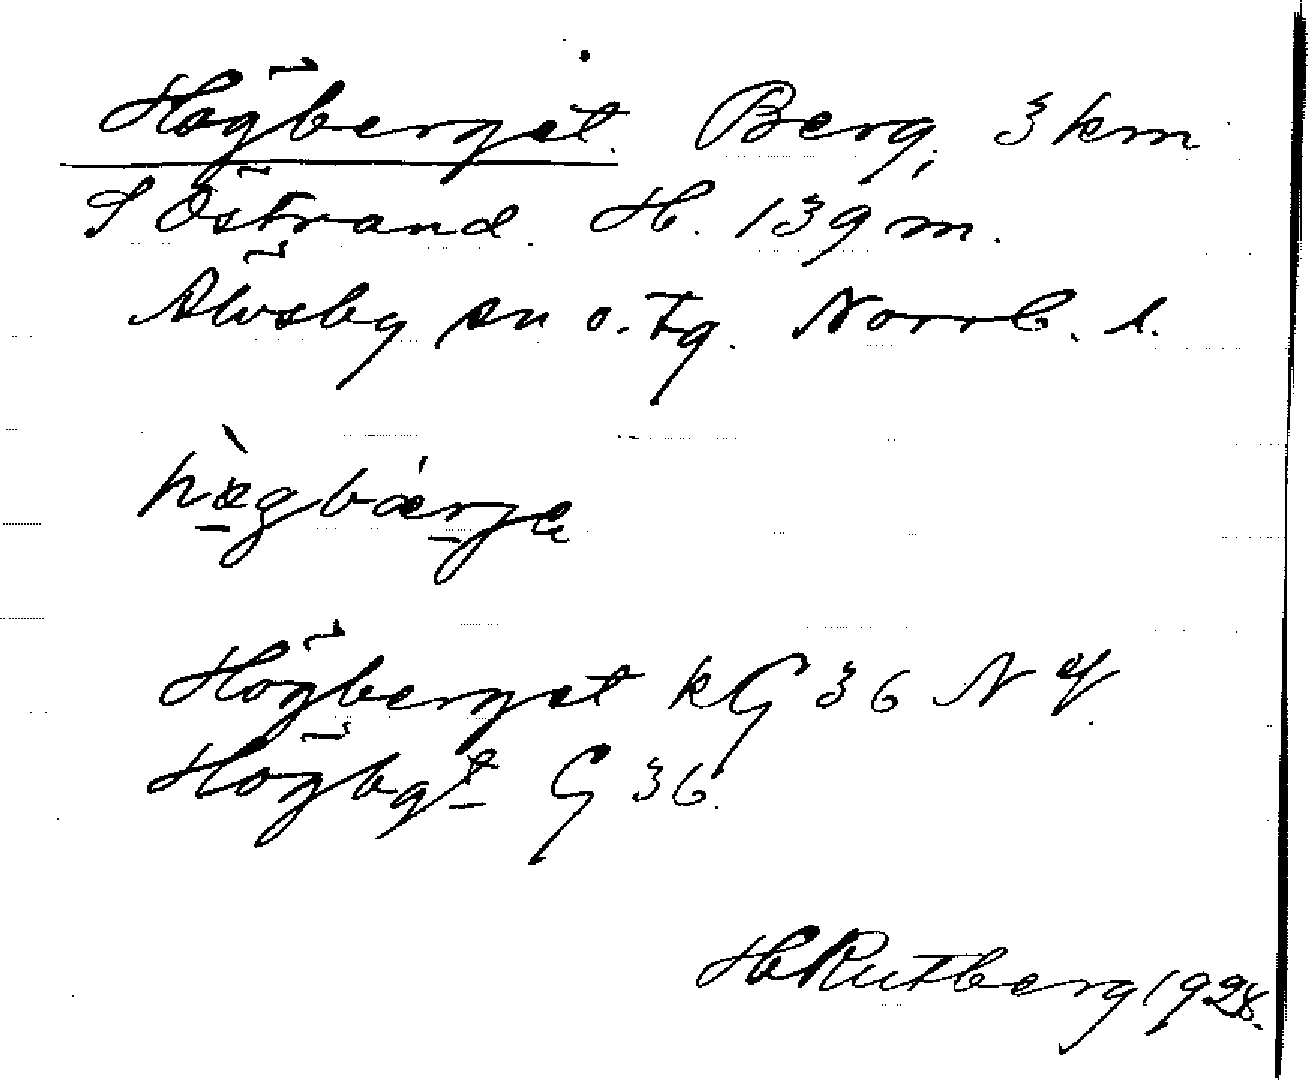 Högberget. Berg, 3 km
S Östrand. H. 139 m.
Älvsby sn o. tg. Norrb. l.
hægbærjе
Högberget kG 36 NV.
Högbgt G 36.
H Rutberg 1928.